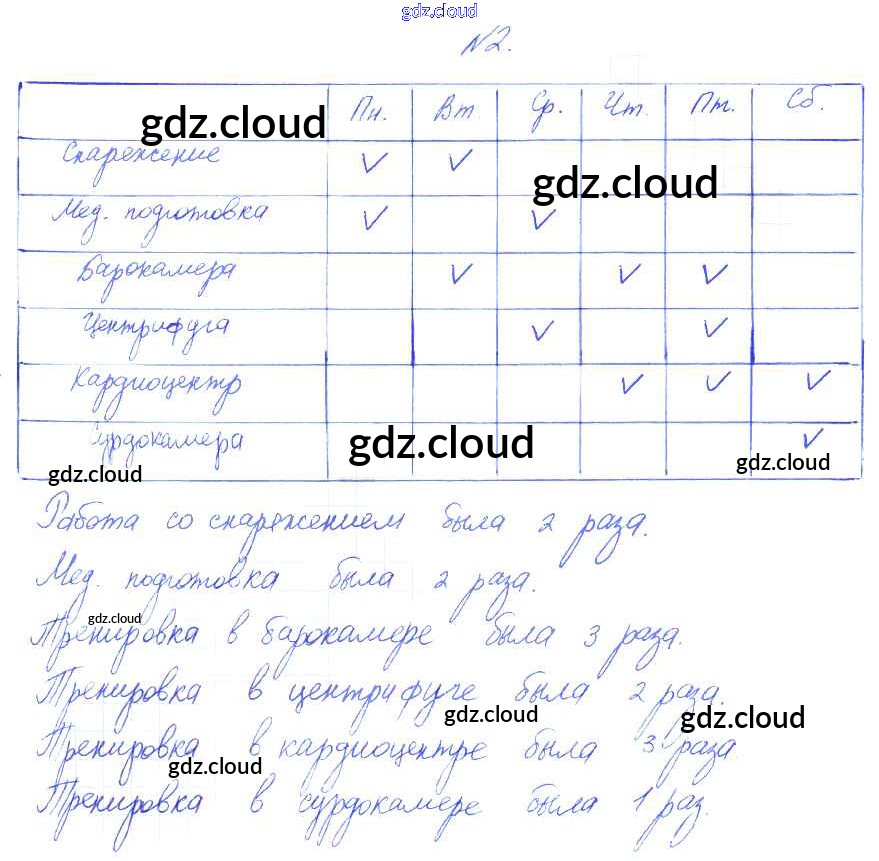 gdz.cloud
№2.
Пн. Вт. Ср. Чт. Пт. Сб.
gdz.cloud
Снаряжение ✓ ✓
gdz.cloud
Мед. подготовка ✓ ✓
Барокамера ✓ ✓ ✓
Центрифуга ✓ ✓
Кардиоцентр ✓ ✓ ✓
Сурдокамера ✓
gdz.cloud
gdz.cloud
gdz.cloud
Работа со снаряжением была 2 раза.
Мед. подготовка была 2 раза.
gdz.cloud
Тренировка в барокамере была 3 раза.
Тренировка в центрифуге была 2 раза.
gdz.cloud
gdz.cloud
Тренировка в кардиоцентре была 3 раза
gdz.cloud
Тренировка в сурдокамере была 1 раз.